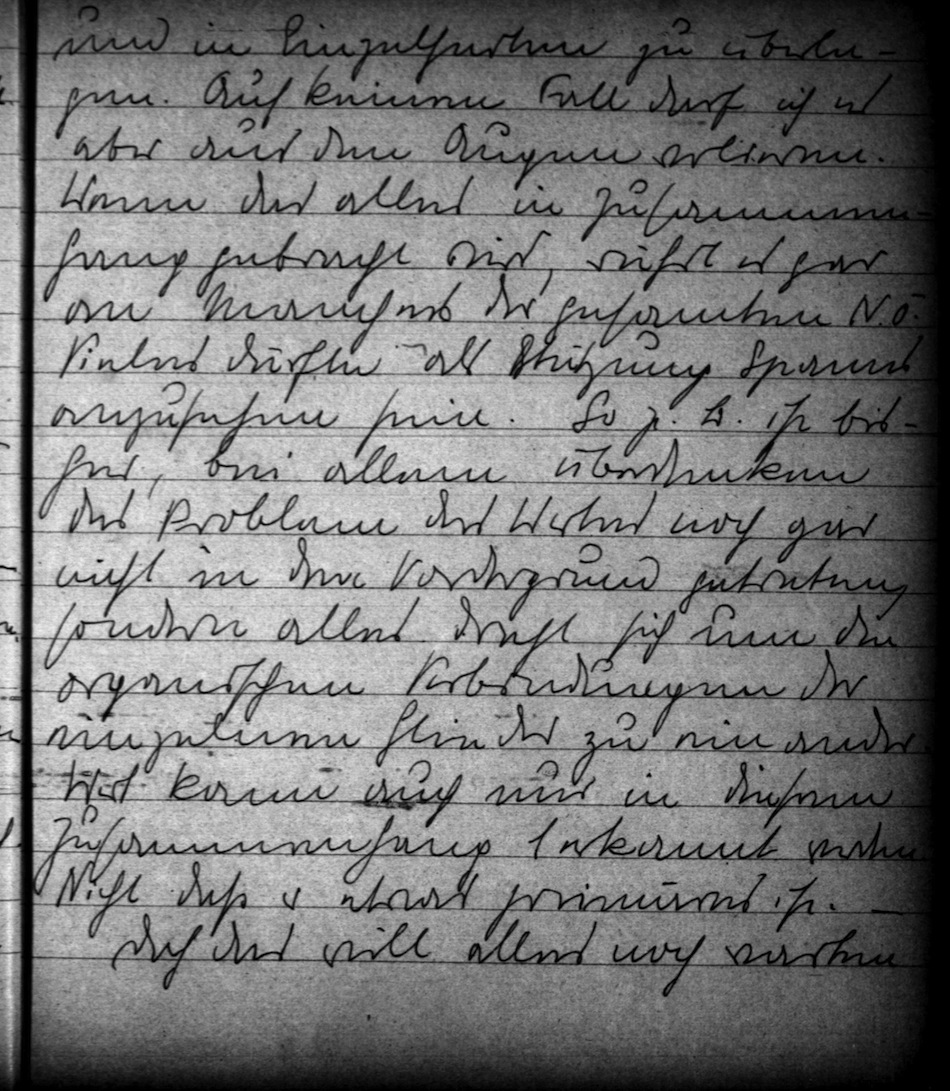 und in Einzelheiten zu überle-
gen. Auf keinen Fall darf ich es
aber aus den Augen verlieren.
Wenn das alles in Zusammen-
hang gebracht wird, rührt es gar
an Manches der gesamten N.Ö.
Vieles dürfte als Stützung Spanns
anzusehen sein. So z. B. ist bis-
her, bei allem überdenken
das Problem des Wertes noch gar
nicht in den Vordergrund getreten,
sondern alles dreht sich um die
organischen Verbindungen der
einzelnen Glieder zu einander.
Wert kann auch nur in diesem
Zusammenhang erkannt werden
Nicht dass er etwas primäres ist. —
Doch das will alles noch warten